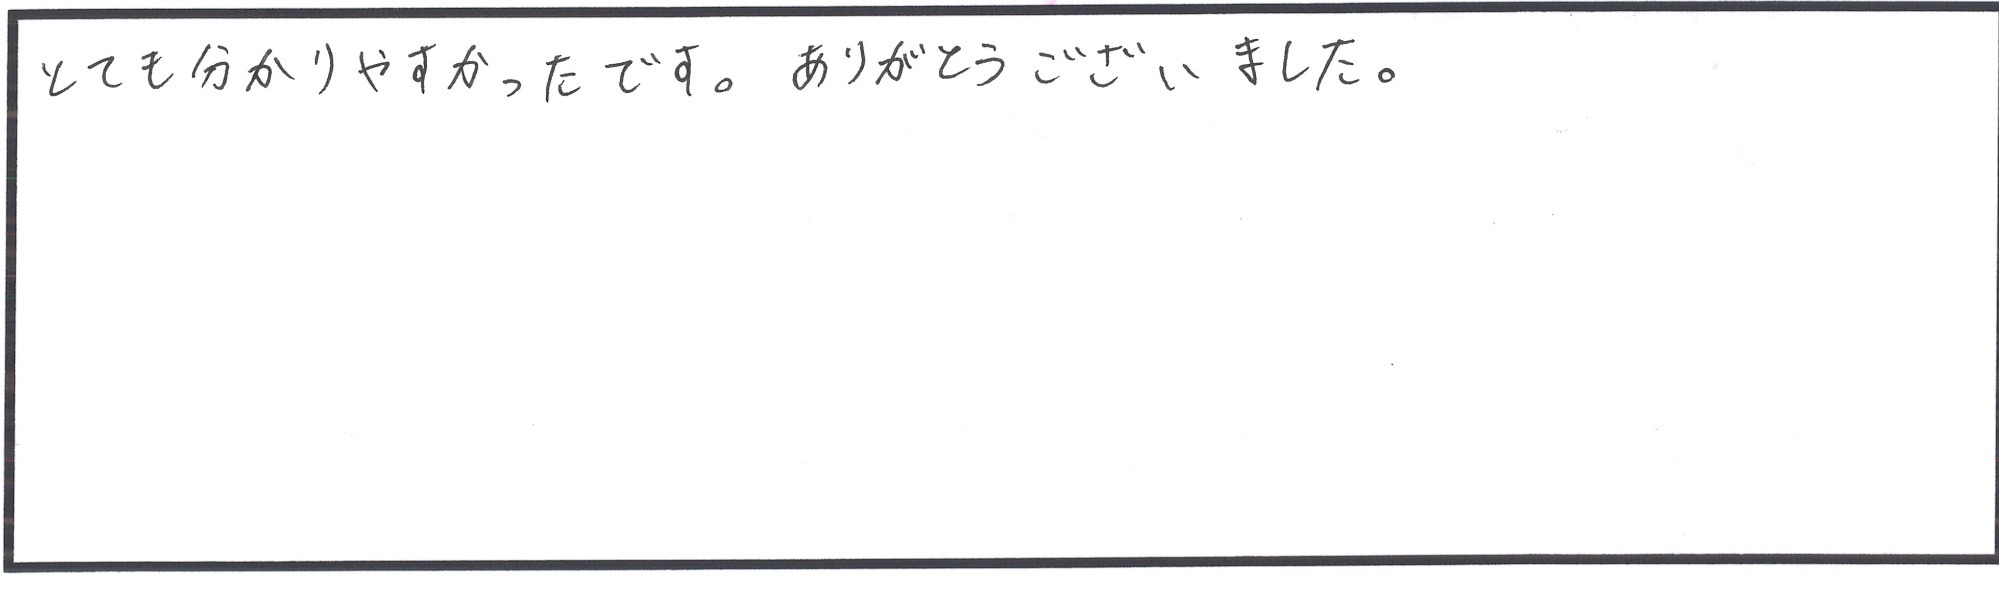 とても分かりやすかったです。ありがとうございました。